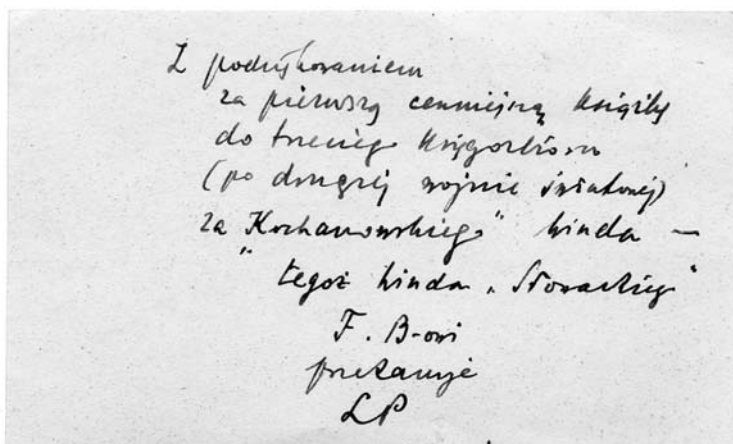 Z podziękowaniem
za pierwszą cenniejszą książkę
do trzeciego księgozbioru
(po drugiej wojnie światowej)
za „Kochanowskiego” Winda —
tegoż Winda „Słowackiego”
F. B-owi
przekazuje
LP